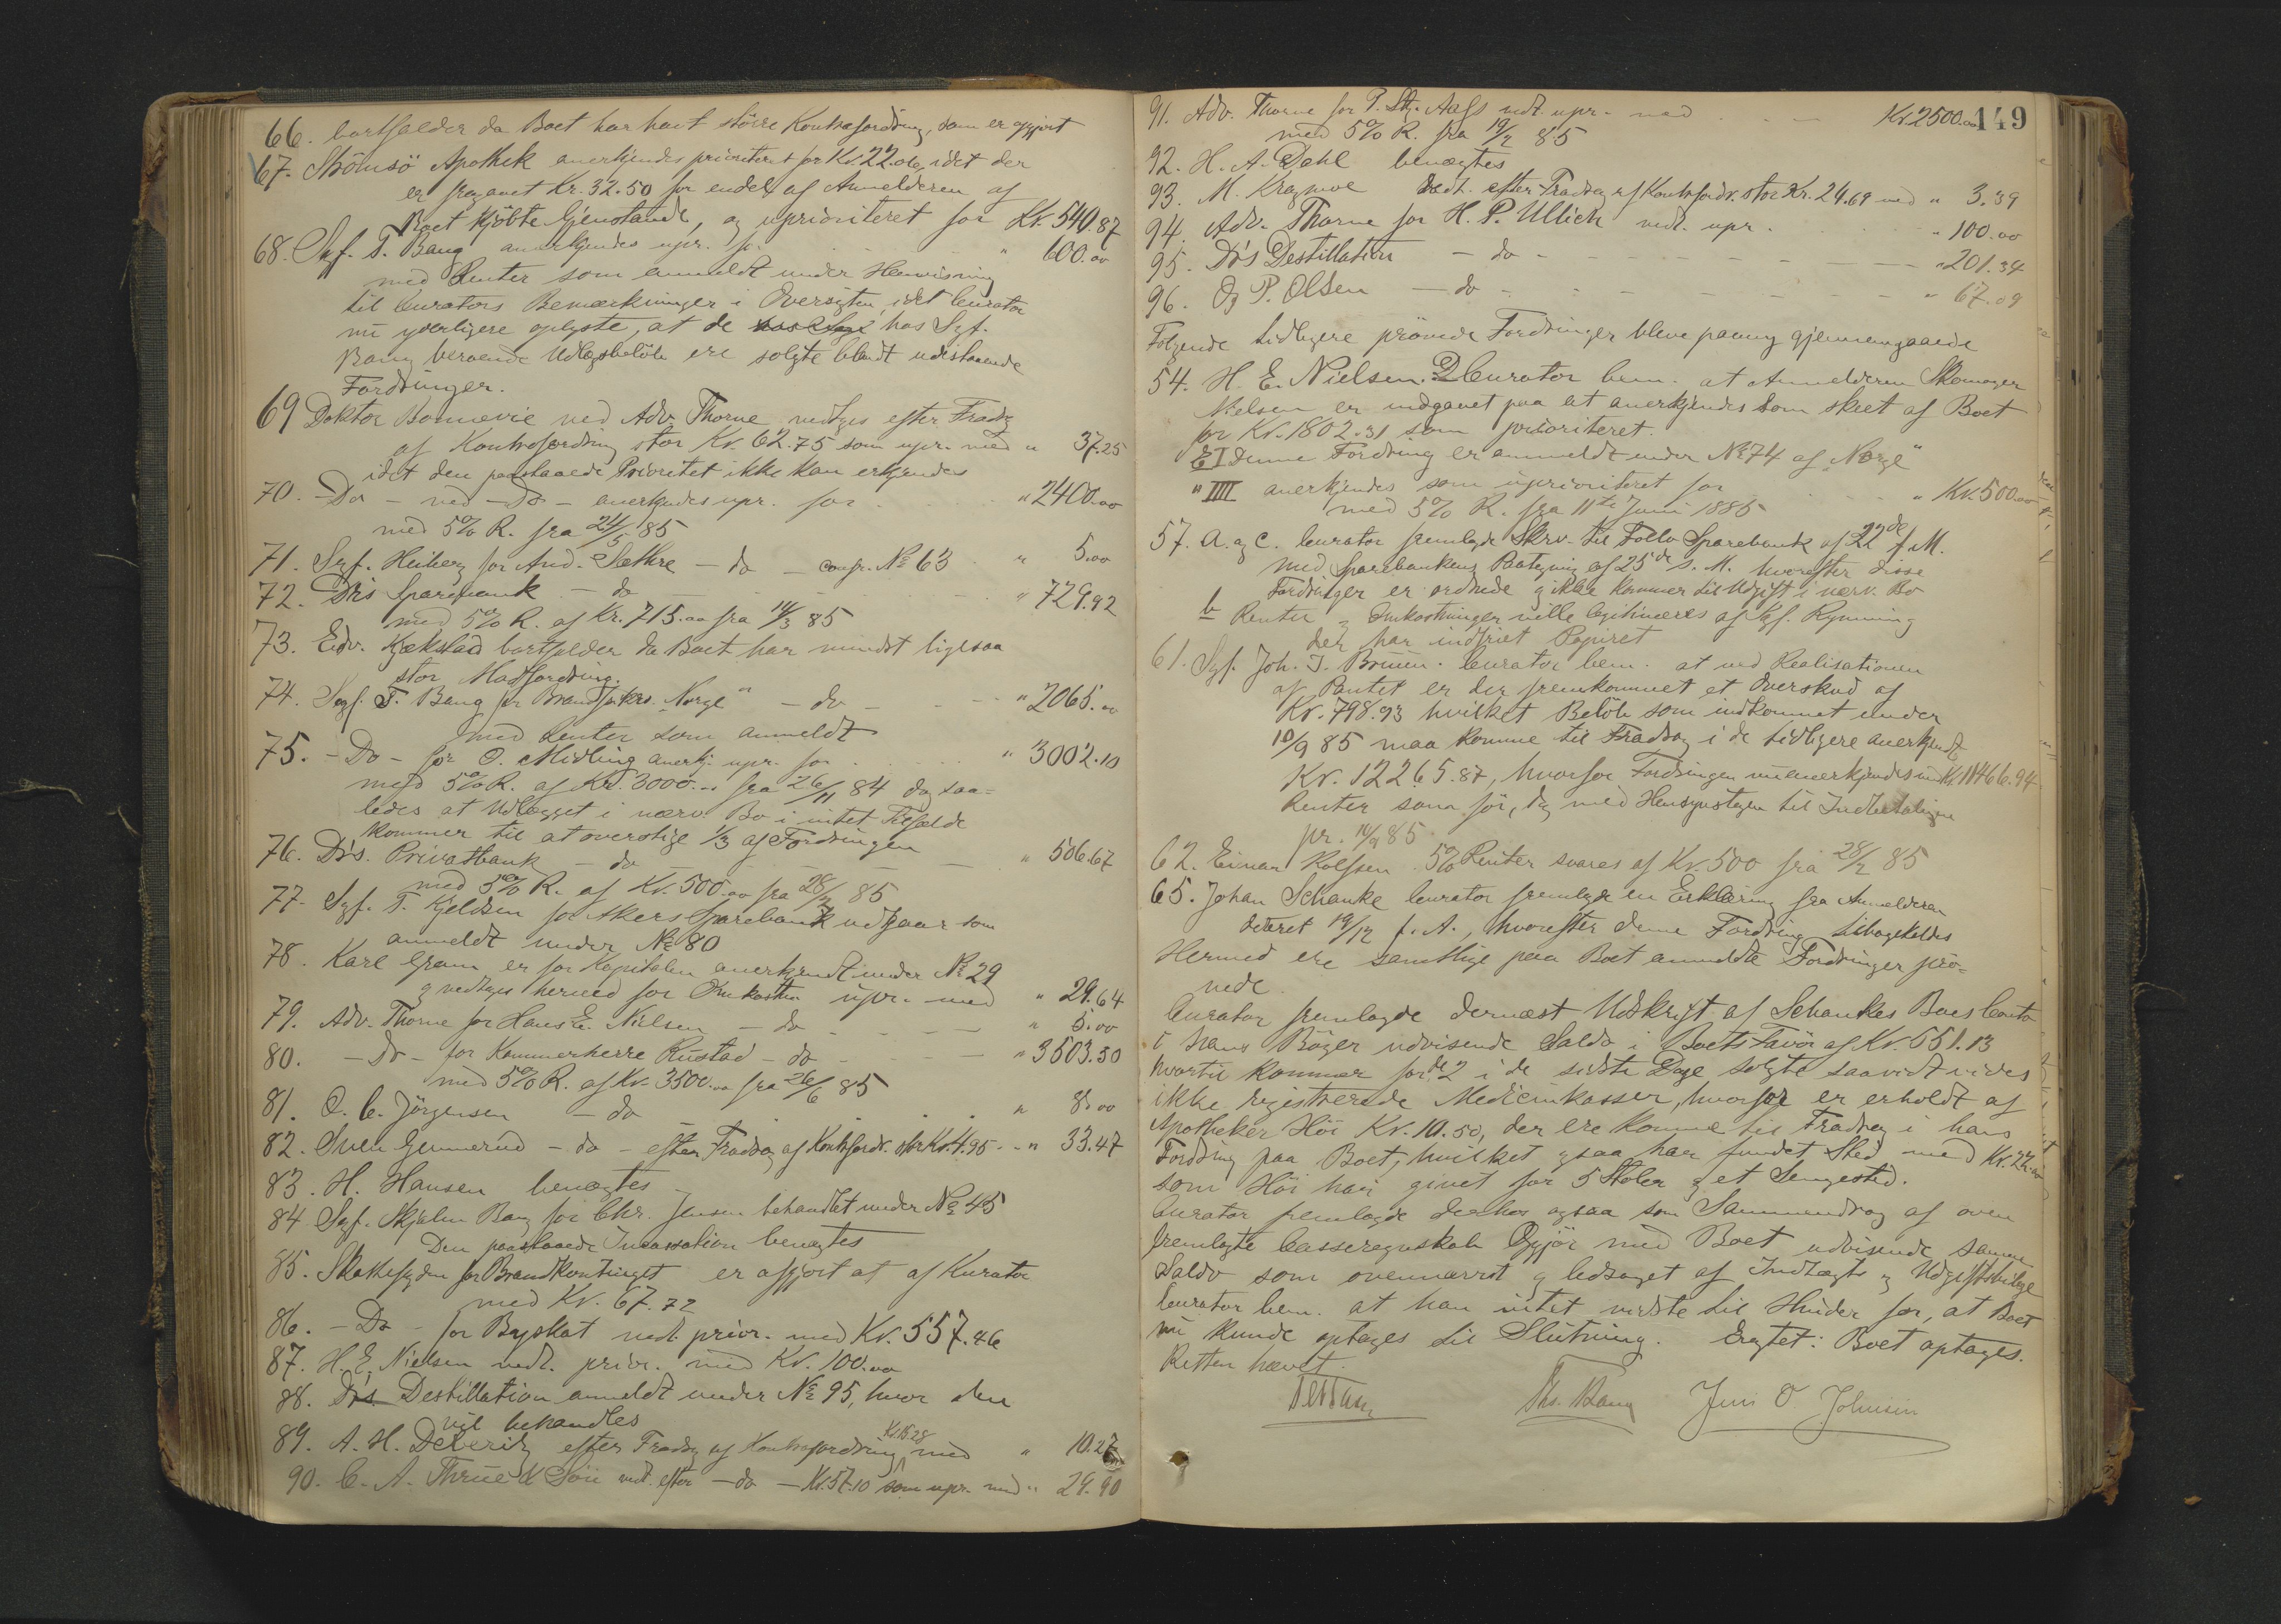 66. bortfalder da Boet har havt större Kontrafordring, som er opgjort
67. Strömsö Apothek anerkjendes prioriteret for Kr. 22.00, idet der
er fragaaet Kr. 32.50 for endel af Anmelderen af
Boet kjöbte Gjenstande, og uprioriteret for Kr. 540.87
68. Sagf. T. Bang anerkjendes upr. for " 600.00
med Renter som anmeldt under Henvisning
til Curators Bemærkninger i Oversigten, idet Curator
nu yderligere oplyste, at de hos Sagf.
Bang beroende Udlægsbelöb ere solgte blandt udestaaende
Fordringer.
69 Doktor Bonnevie ved Adv. Thorne vedtages efter Fradrag
af Kontrafordring stor Kr. 62.75 som upr. med " 37.25
idet den paastaaede Prioritet ikke kan erkjendes
70. - Do - ved - Do - anerkjendes upr. for " 2400.00
med 5% R. fra 21/5 85
71. Sagf. Heiberg for And. Sæthre - do - confr. No 63 " 5.00
72. D's Sparebank - do - " 729.92
med 5% R. af Kr. 715.00 fra 14/3 85
73. Edv. Kjækstad bortfalder da Boet har mindst ligesaa
stor Modfordring.
74. Sagf. T. Bang for Brandforsikrs. "Norge" - do - " 2065.00
med Renter som anmeldt
75. - Do - for O. Midling anerkj. upr. for " 3002.10
med 5% R. af Kr. 3000.- fra 26/11 84 dog saa-
ledes at Udlægget i nærv. Bo i intet Tilfælde
kommer til at overstige 1/3 af Fordringen
76. D's. Privatbank - do - " 506.67
med 5% R. af Kr. 500.00 fra 28/2 85
77. Sagf. T. Kjeldsen for Skers Sparebank udgaar som
anmeldt under No 80
78. Karl Gram er for Kapitalen anerkjendt under No 29
og vedtages herved for Omkostn. upr. med " 29.64
79. Adv. Thorne for Hans E. Nielsen - do - " 5.00
80. - Do - for Kammerherre Rustad - do - " 3503.50
med 5% R. af Kr. 3500.00 fra 26/6 85
81. O. C. Jörgensen - do - " 8.00
82. Sven Gunnerud - do - efter Fradrag af Kontrafordr. stor Kr. 4.95 - - " 33.47
83. H. Hansen benægtes
84 Sagf. Skjelm Bang for Chr. Jensen behandlet under No 45
Den paastaaede Incassation benægtes
85. Skattefogden for Brandkontinget er afgjort af Kurator
med Kr. 67.72
86. - Do - for Byskat vedt. prior. med Kr. 557.46
87. H. E. Nielsen vedt. prior. med Kr. 100.00
88. D's Destillation anmeldt under No 95, hvor den
vil behandles
89. A. H. Deberitz efter Fradrag af Kontrafordring Kr. 15.28 med " 10.27
90. C. A. Thrue & Sön vedt. efter - do - Kr. 57.10 som upr. med " 29.90
149
91. Adv. Thorne for P. Ltz. Aass vedt. upr. med Kr. 2500.00
med 5% R. fra 19/2 85
92. H. A. Dahl benægtes
93. M. Kragmoe vedt. efter Fradrag af Kontrafordr. stor Kr. 24.69 med " 3.39
94. Adv. Thorne for H. P. Ullich vedt. upr. " 100.00
95. D's Destillation - do - " 201.34
96. Og P. Olsen - do - " 67.09
Følgende tidligere prövede Fordringer bleve paany gjennemgaaede
54. H. E. Nielsen. Curator bem. at Anmelderen Skomager
Nielsen er indgaaet paa at anerkjendes som skeet af Boet
for Kr. 1802.31 som prioriteret.
E I Denne Fordring er anmeldt under No 74 af "Norge"
" IIII anerkjendes som uprioriteret for " Kr. 500.00
med 5% R. fra 11te Juni 1885
57. A. og C. Curator fremlagde Skrv. til Follo Sparebank af 22de f. M.
med Sparebankens Paategning af 25de s. M. hvorefter disse
Fordringer er ordnede og ikke kommer til Udgift i nærv. Bo
b Renter og Omkostninger ville legitimeres af Sagf. Rynning
der har indfriet Papiret
61. Sagf. Joh. J. Bruun. Curator bem. at ved Realisationen
af Pantet er der fremkommet et Overskud af
Kr. 798.93 hvilket Belöb som indkommet under
10/9 85 maa komme til Fradrag i de tidligere anerkjendte
Kr. 12265.87, hvorfor Fordringen nu anerkjendes med Kr. 11466.94
Renter som för, dog med Hensyntagen til Indbetalingen
pr. 10/9 85
62. Einar Rolfsen 5% Renter svares af Kr. 500 fra 28/2 85
65. Johan Schanke Curator fremlagde en Erklæring fra Anmelderen
dateret 19/12 f. A., hvorefter denne Fordring tilbagekaldes
Hermed ere samtlige paa Boet anmeldte Fordringer prö-
vede.
Curator fremlagde dernæst Udskrift af Schankes Boes Conto
i hans Böger udvisende Saldo i Boets Favör af Kr. 551.13
hvortil kommer for de 2 i de sidste Dage solgte saavidt vides
ikke registrerede Medicinkasser, hvorfor er erholdt af
Apotheker Höi Kr. 10.50, der ere komne til Fradrag i hans
Fordring paa Boet, hvilket ogsaa har fundet Sted med Kr. 22.00
som Höi har givet for 5 Stoler og et Sengested.
Curator fremlagde derhos ogsaa som Sammendrag af oven
fremlagte Casseregnskab Opgjör med Boet udvisende samme
Saldo som ovennævnt og ledsaget af Indtægts og Udgiftsbilage
Curator bem. at han intet vidste til Hinder for, at Boet
nu kunde optages til Slutning. Eragtet: Boet optages.
Retten hævet.
Ths. Bang Jens O. Johnsen